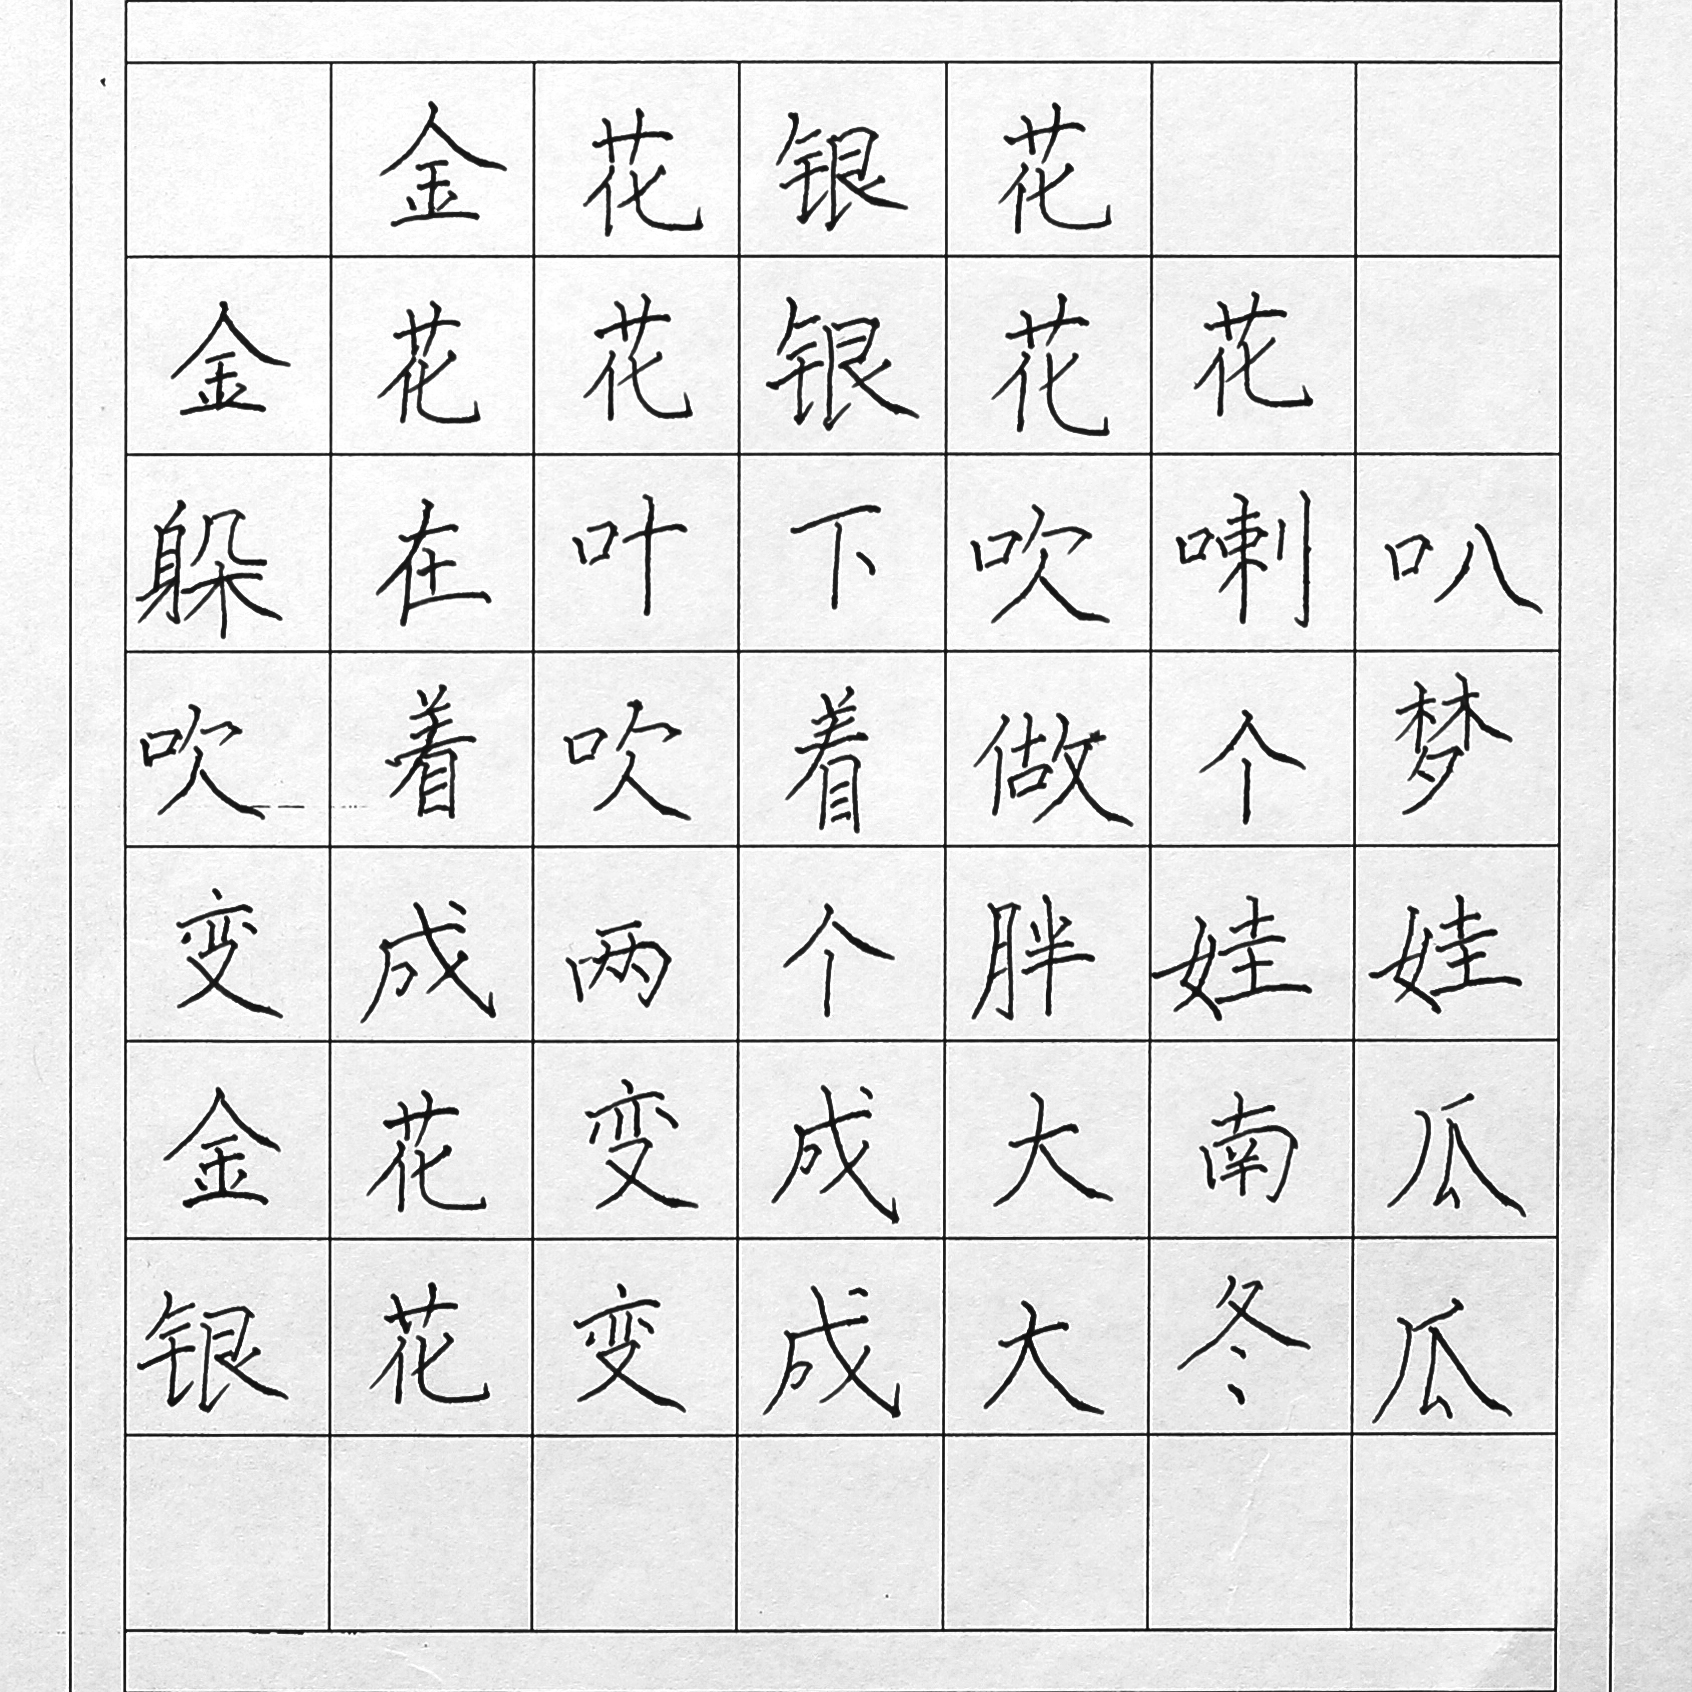 金花银花
金花花银花花
躲在叶下吹喇叭
吹着吹着做个梦
变成两个胖娃娃
金花变成大南瓜
银花变成大冬瓜